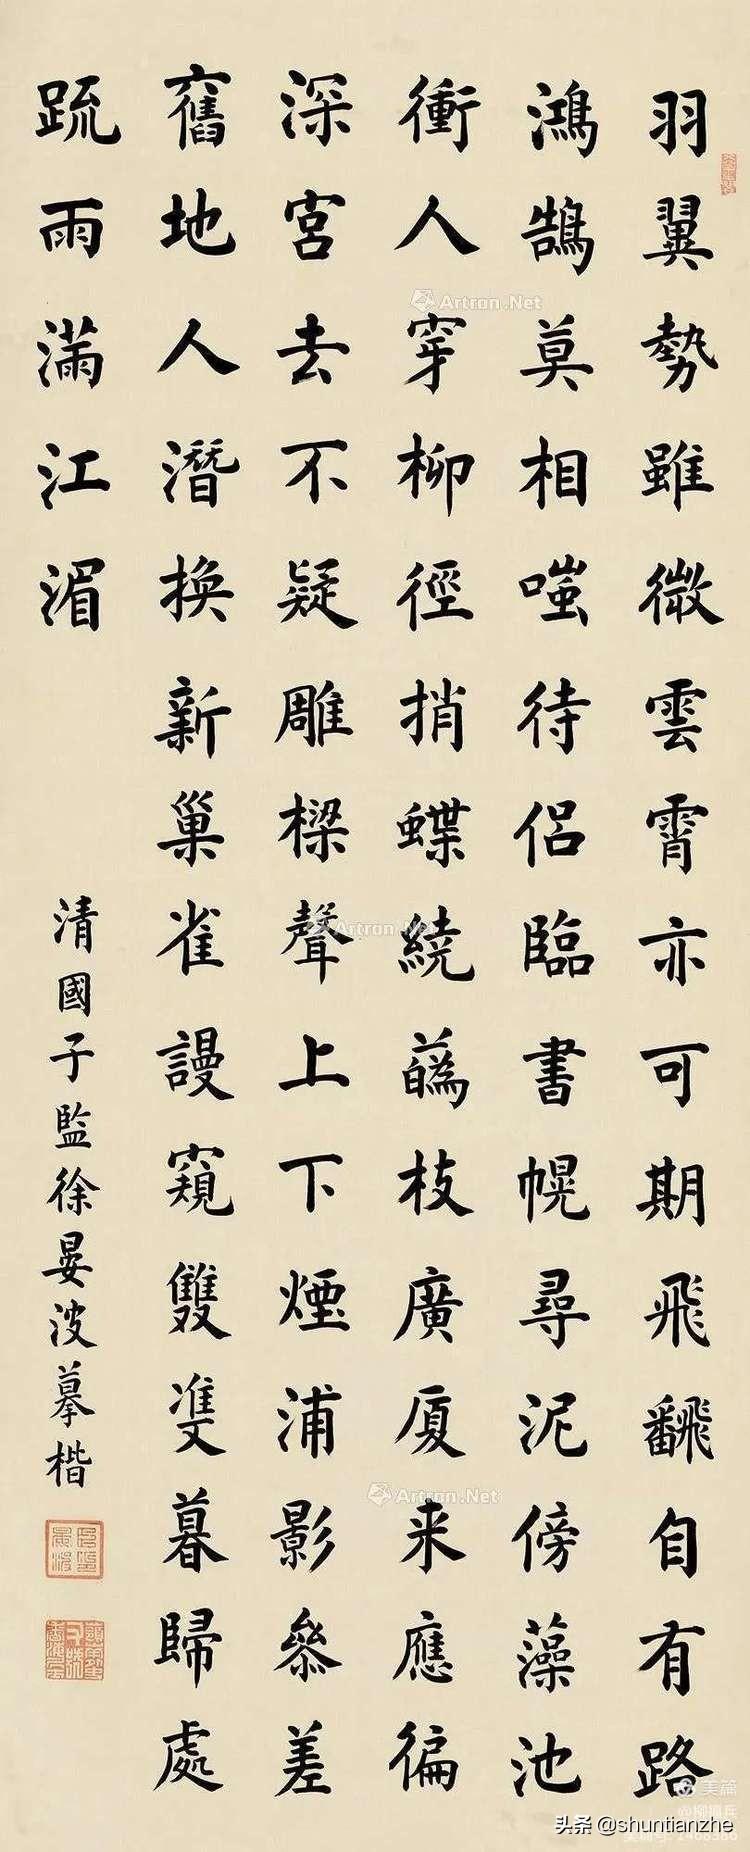 羽翼勢雖微雲霄亦可期飛飜自有路
鴻鵠莫相嗤待侶臨書幌尋泥傍藻池
衝人穿柳徑捎蝶繞蘤枝廣厦来應徧
深宮去不疑雕樑聲上下煙浦影叅差
舊地人潛換新巢雀謾窺雙隻暮歸處
疏雨滿江湄
清國子監徐晏波摹楷
Artron.Net
Artron.Net
Artron.Net
美篇
头条 @shuntianzhe